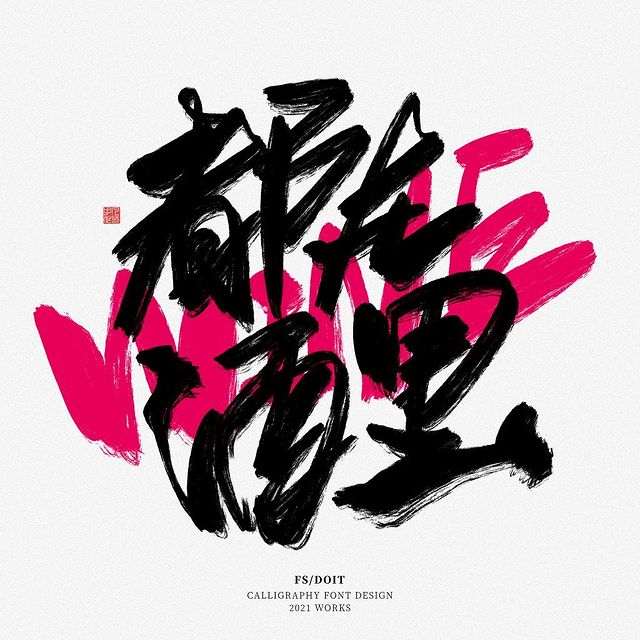 都在
酒里
WINE
FS/DOIT
CALLIGRAPHY FONT DESIGN
2021 WORKS